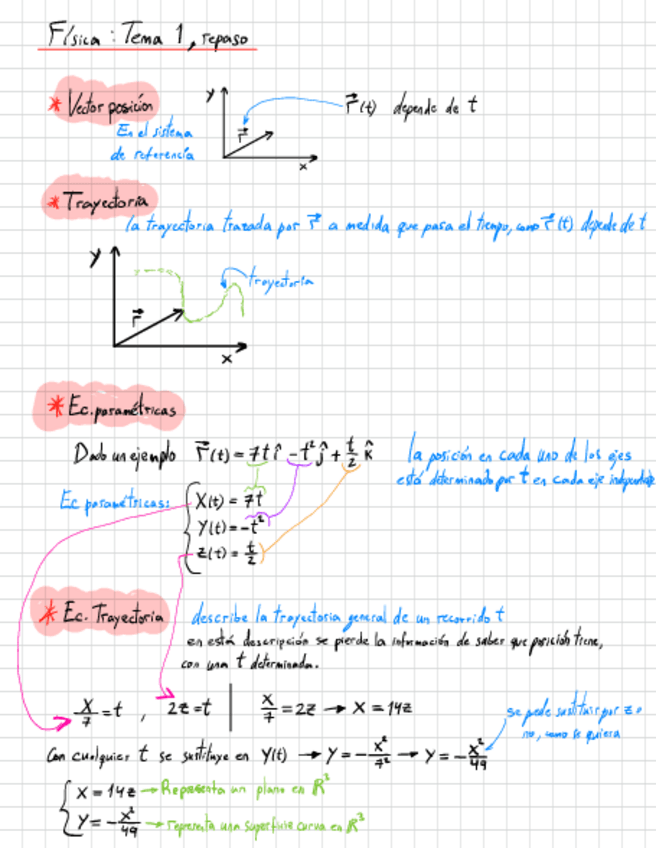 Física: Tema 1, repaso
* Vector posición
En el sistema
de referencia
y
r⃗
x
r⃗(t) depende de t
* Trayectoria
la trayectoria trazada por r⃗ a medida que pasa el tiempo, como r⃗(t) depende de t
y
r⃗
x
trayectoria
* Ec. paramétricas
Dado un ejemplo r⃗(t) = 7t î - t² ĵ + t/2 k̂
la posición en cada uno de los ejes
está determinado por t en cada eje independiente
Ec paramétricas:
X(t) = 7t
Y(t) = -t²
Z(t) = t/2
* Ec. Trayectoria
describe la trayectoria general de un recorrido t
en está descripción se pierde la información de saber que posición tiene,
con una t determinada.
X/7 = t , 2z = t | X/7 = 2z → X = 14z
se pede sustituir por z o
no, como se quiera
Con cualquier t se sustituye en Y(t) → Y = -x²/7² → Y = -x²/49
X = 14z → Representa un plano en R³
Y = -x²/49 → representa una superficie curva en R³